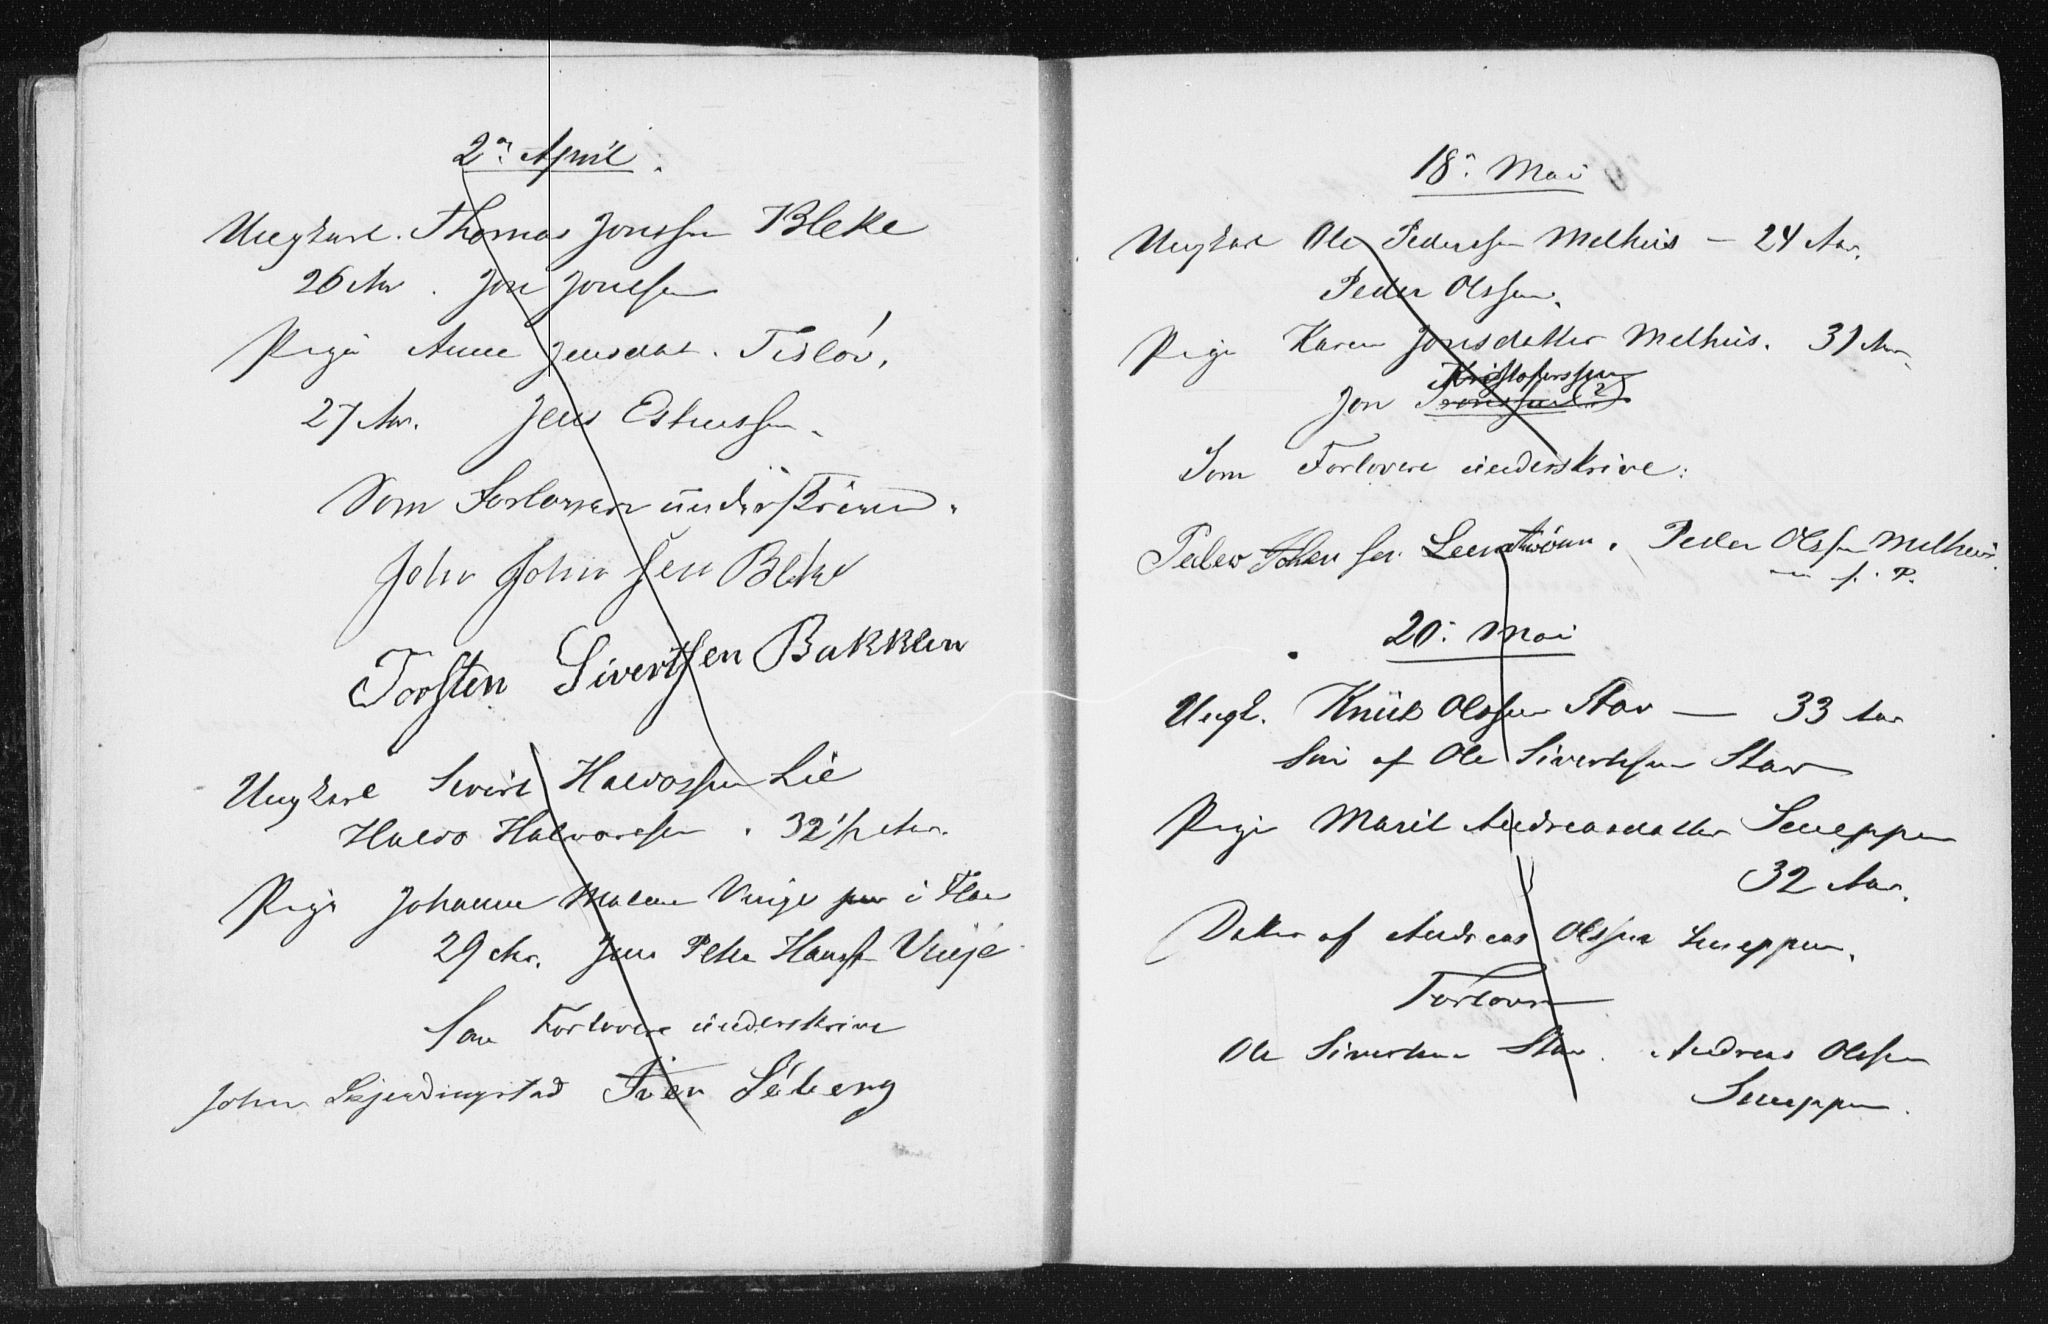 2n: April.
Ungkarl. Thomas Jonssen Bleke
26 Aar. Jon Jonssen
Pige Anne Jensdat. Tisløv.
27 Aar. Jens Estenssen.
Som Forlovere underskriver.
John Johnsen Bleke
Torsten Sivertsen Bakklen
Ungkarl Sivert Halvorssen Lie
Halvo Halvorssen. 32 1/2 Aar.
Pige Johanne Malene Vinje i Flaa
29 Aar. Jens Peter Vinje
Som Forlovere underskrive
John Iver Seberg
18: Mai
Ungkarl Ole Pederssen Melhus — 24 Aar.
Peder Olssen.
Pige Karen Jonsdatter Melhus. 31 Aar
Kristoferssen
Jon Tronssen (?)
Som Forlovere underskrive:
Peder Johansen. Peder Olssen Melhus.
m. f. P.
20: Mai
Ungk. Knut Olssen Stav — 33 Aar
Søn af Ole Sivertssen Stav
Pige Marit Andreasdatter Sneppen
32 Aar.
Datter af Andreas Olssen Sneppen.
Forlovere
Ole Sivertsen Stav. Andreas Olssen
Sneppen.